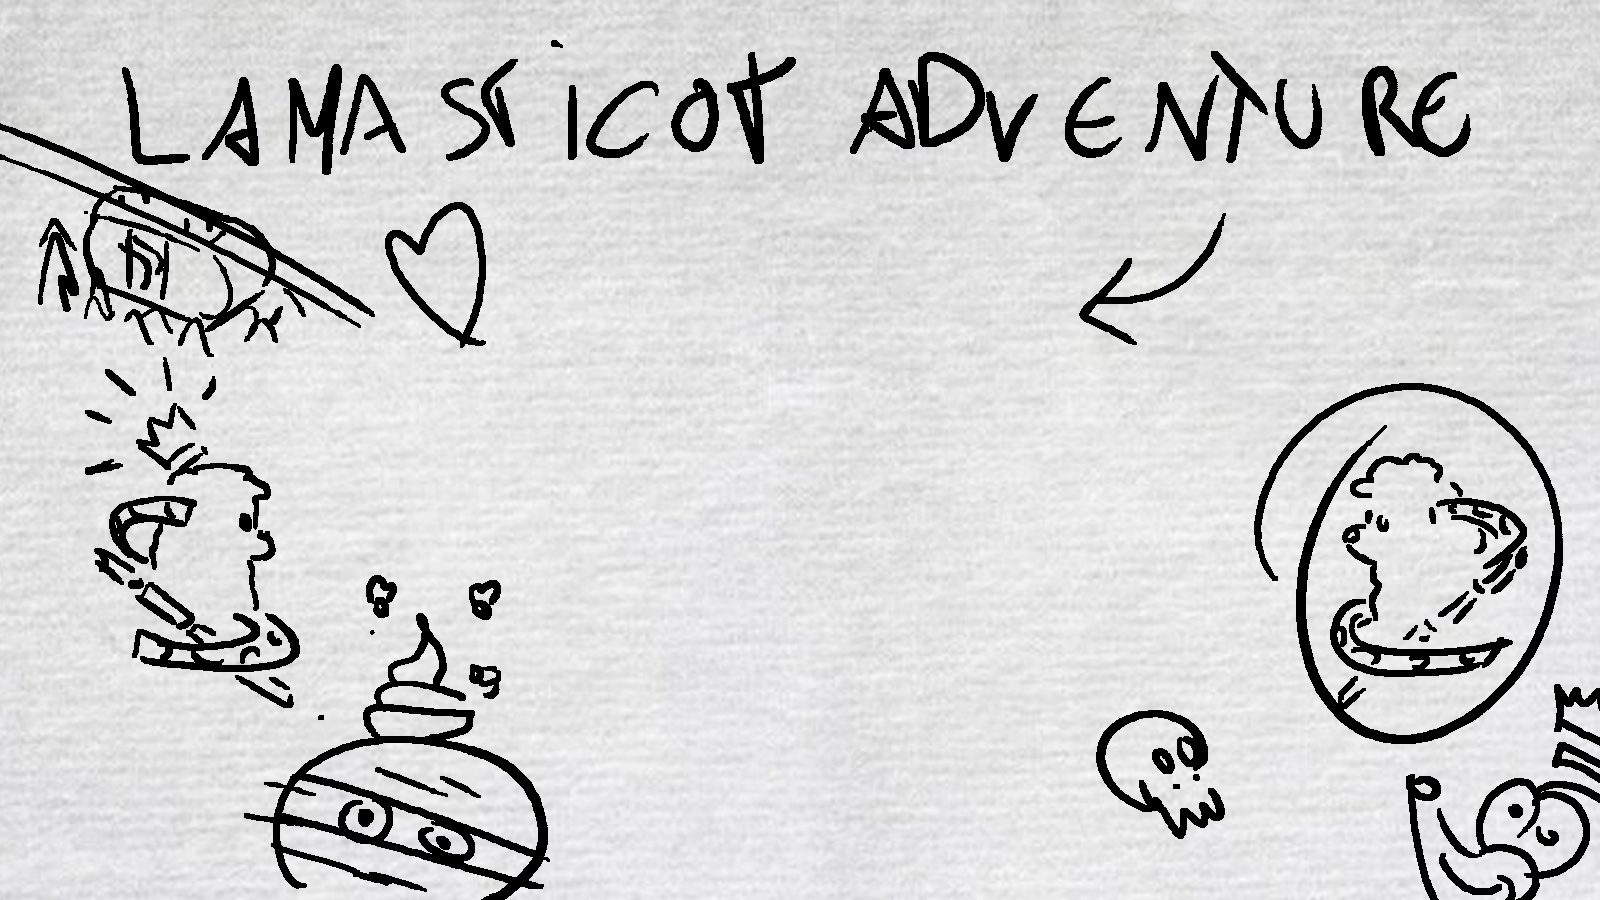 LAMASTICOT ADVENTURE